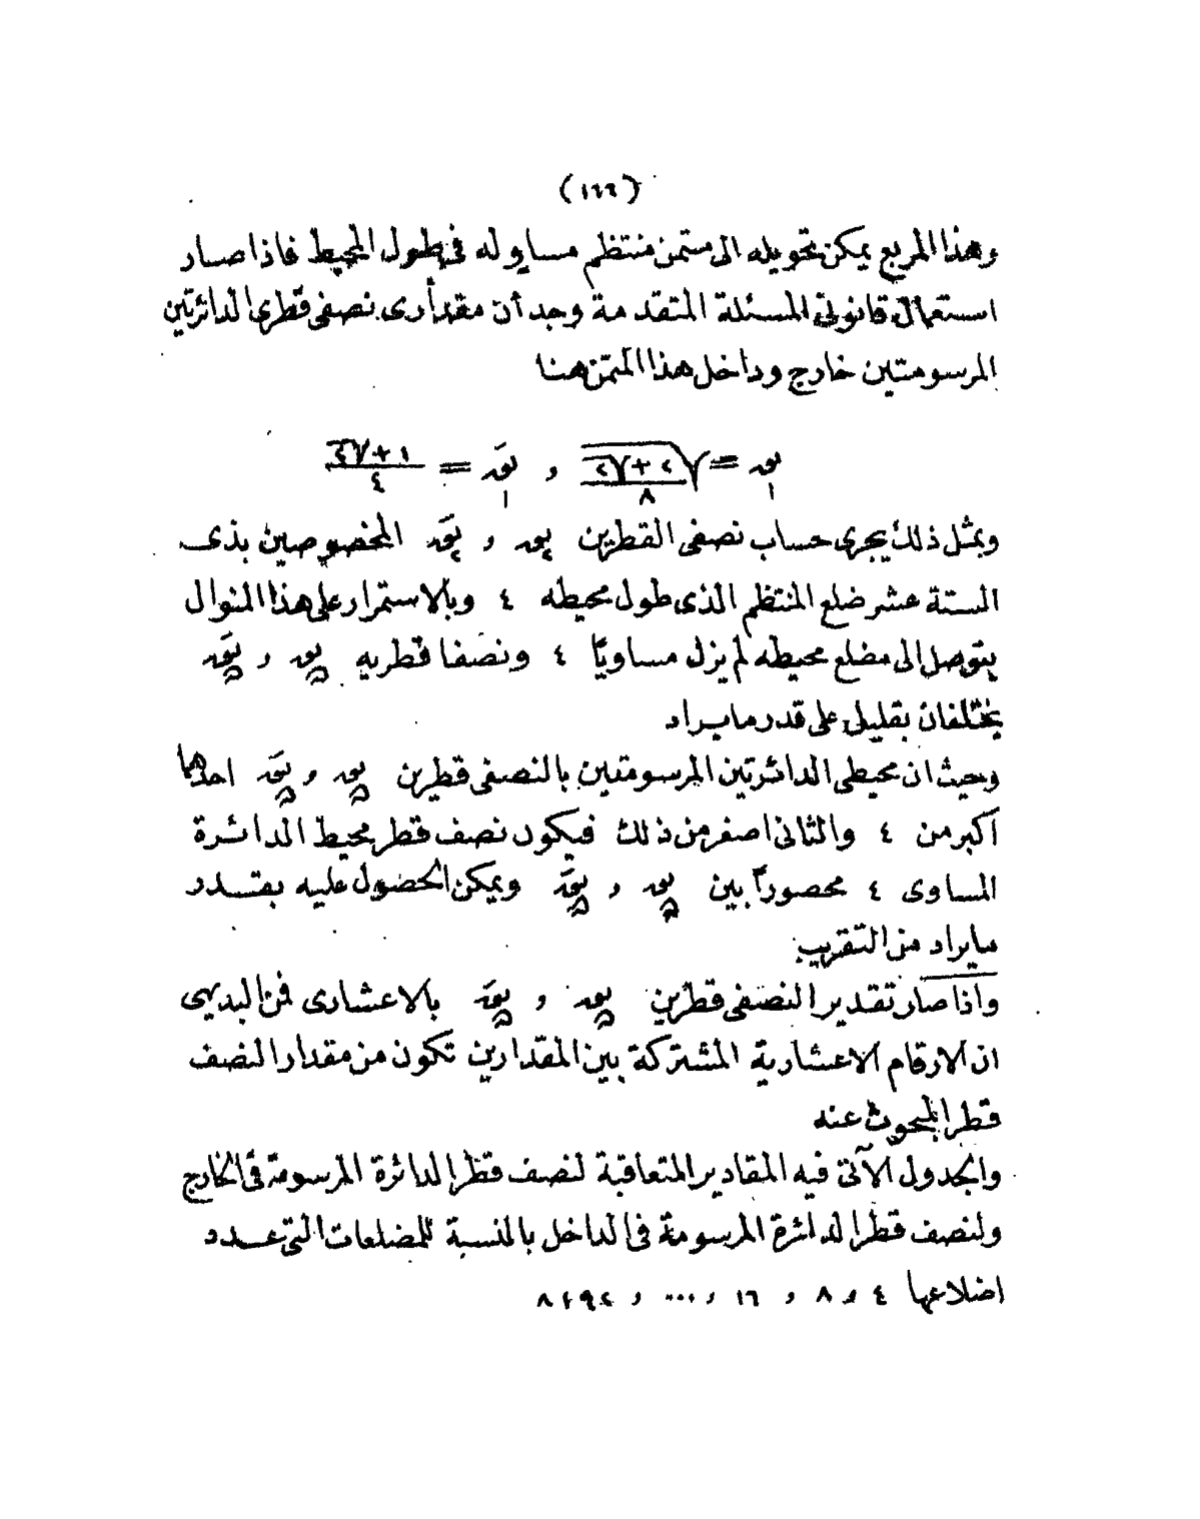 (١٦٦)
وهذا المربع يمكن تحويله الى مثمن منتظم مساو له فى طول المحيط فاذا صار
استعمال قانونى المسئلة المتقدمة وجد أن مقدارى نصفى قطرى الدائرتين
المرسومتين خارج وداخل هذا المثمن هنا
نور١ = √(٢+√٢)/٨ و نوَر١ = (١+√٢)/٤
وبمثل ذلك يجرى حساب نصفى القطرين نور٢ و نوَر٢ المخصوصين بذى
الستة عشر ضلع المنتظم الذى طول محيطه ٤ وبالاستمرار على هذا المنوال
يتوصل الى مضلع محيطه لم يزل مساويًا ٤ ونصفا قطريه نور و نوَر
يختلفان بقليل على قدر ما يراد
وحيث ان محيطى الدائرتين المرسومتين بالنصفى قطرين نور و نوَر احدهما
أكبر من ٤ والثانى اصغر من ذلك فيكون نصف قطر محيط الدائرة
المساوى ٤ محصورًا بين نور و نوَر ويمكن الحصول عليه بقدر
ما يراد من التقريب
واذا صار تقدير النصفى قطرين نور و نوَر بالاعشارى فمن البديهى
ان الارقام الاعشارية المشتركة بين المقدارين تكون من مقدار النصف
قطر المبحوث عنه
والجدول الآتى فيه المقادير المتعاقبة لنصف قطر الدائرة المرسومة فى الخارج
ولنصف قطر الدائرة المرسومة فى الداخل بالنسبة للمضلعات التى عدد
اضلاعها ٤ و ٨ و ١٦ و ... و ٨١٩٢